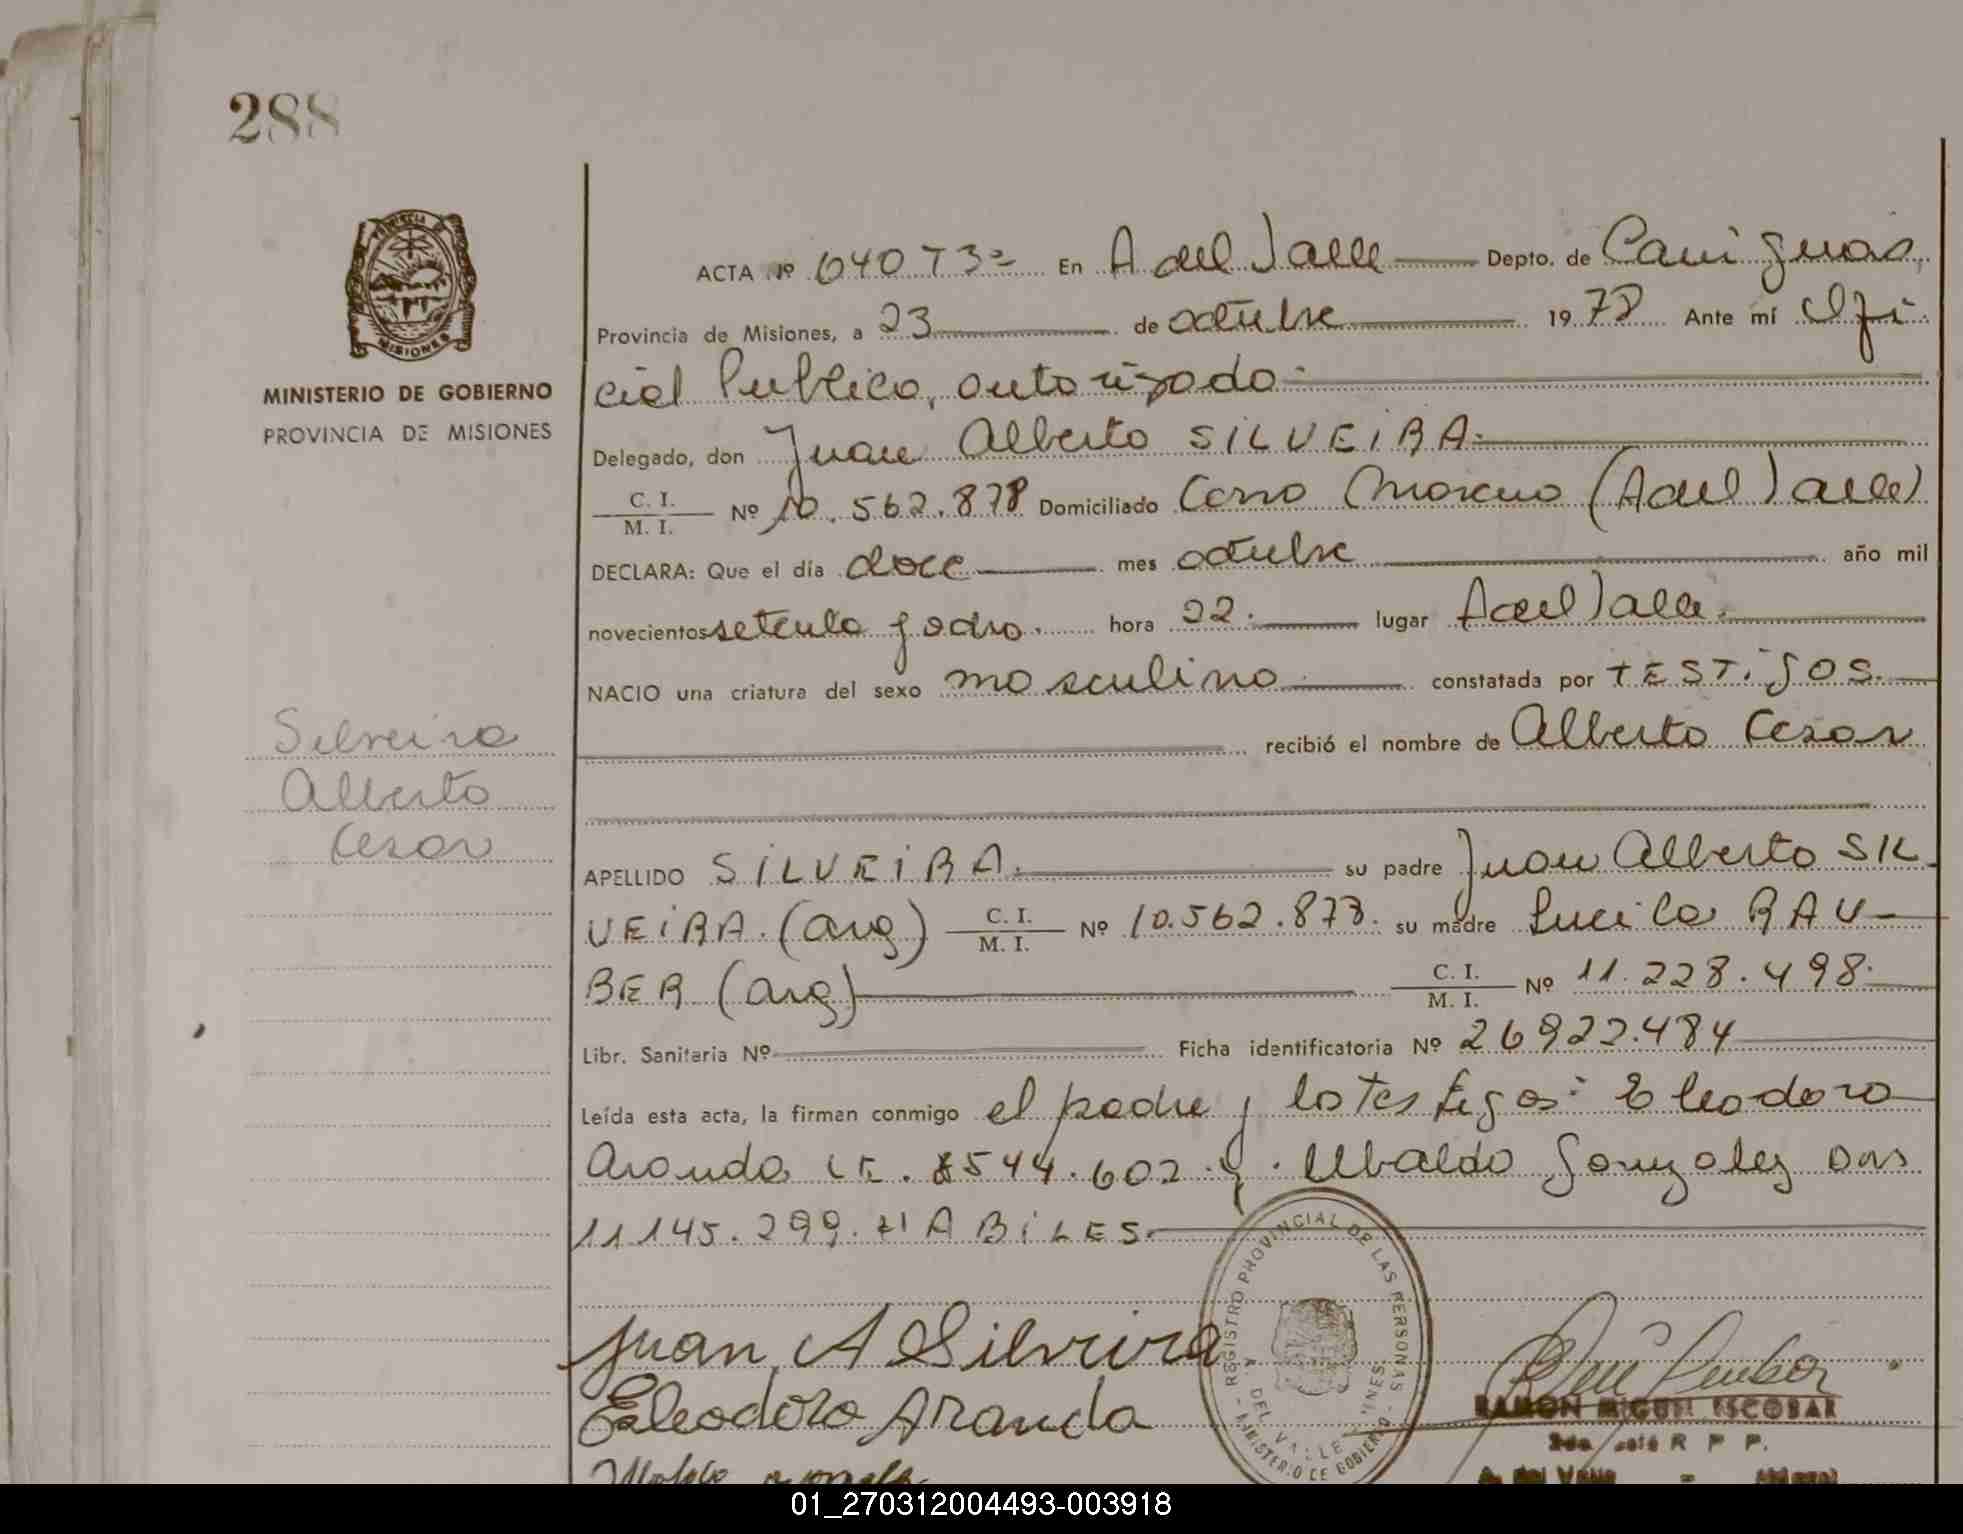 288
PROVINCIA DE
MISIONES
MINISTERIO DE GOBIERNO
PROVINCIA DE MISIONES
ACTA Nº 640 T3º En A del Valle Depto. de Cainguas,
Provincia de Misiones, a 23 de octubre 1978 Ante mí Ofi
cial Publico, autorizado.
Delegado, don Juan Alberto SILVEIRA.
C. I.
M. I. Nº 10.562.878 Domiciliado Cerro Moreno (A del Valle)
DECLARA: Que el día doce mes octubre año mil
novecientos setenta y ocho. hora 22. lugar A del Valle.
NACIO una criatura del sexo masculino constatada por TESTigOS.
recibió el nombre de Alberto Cezar
Silveira
Alberto
Cezar
APELLIDO SILVEIRA. su padre Juan Alberto SIL
VEIRA. (arg) C. I.
M. I. Nº 10.562.878. su madre Lucila RAU-
BER (arg) C. I.
M. I. Nº 11.228.498.
Libr. Sanitaria Nº Ficha identificatoria Nº 26922.484
Leída esta acta, la firman conmigo el padre y los testigos: Eleodoro
Aranda LE. 8544.602 y. Ubaldo Gonzalez
11145.299. HABILES.
Juan A Silveira
Eleodoro Aranda
REGISTRO PROVINCIAL DE LAS PERSONAS
A. DEL VALLE
MINISTERIO DE GOBIERNO
RAMON MIGUEL ESCOBAR
R P P.
A. del Valle
01_270312004493-003918